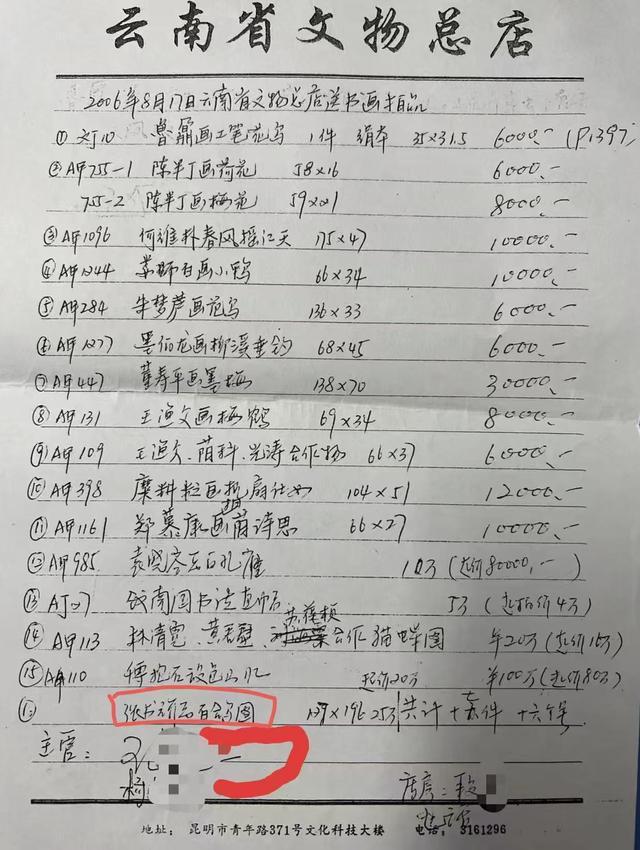 云南省文物总店
2006年8月17日云南省文物总店送书画拍品
① 鲁鼐画工笔花鸟 1件 绢本 35×31.5 6000.- (P1397)
② A甲755-1 陈半丁画荷花 58×16 6000.-
755-2 陈半丁画梅花 59×21 8000.-
③ A甲1096 何维朴春风摇江天 175×47 10000.-
④ A甲1244 画小鸡 66×34 10000.-
⑤ A甲284 朱梦庐画花鸟 136×33 6000.-
⑥ A甲1277 墨伯龙画柳溪垂钓 68×45 6000.-
⑦ A甲447 董寿平画墨梅 138×70 30000.-
⑧ A甲131 王渔父画梅鹤 69×34 8000.-
⑨ A甲109 王渔父、合作 66×37 6000.-
⑩ A甲398 画扇仕女 104×51 12000.-
⑪ A甲1161 郑慕康画诗思 66×27 10000.-
⑫ A甲985 袁晓岑孔雀 10万 (起价80000.-
⑬ 钱南园书法 5万 (起拍价4万)
⑭ A甲113 林清霓、黄君璧、合作猫蝶图 年20万 (起价16万)
⑮ A甲110 傅抱石设色山水 起价20万 半100万 (起价80万)
张书旂画百鸽图 137×196 25万 共计十件 十六件
主管:
店房: 段
地址: 昆明市青年路371号文化科技大楼 电话: 3161296